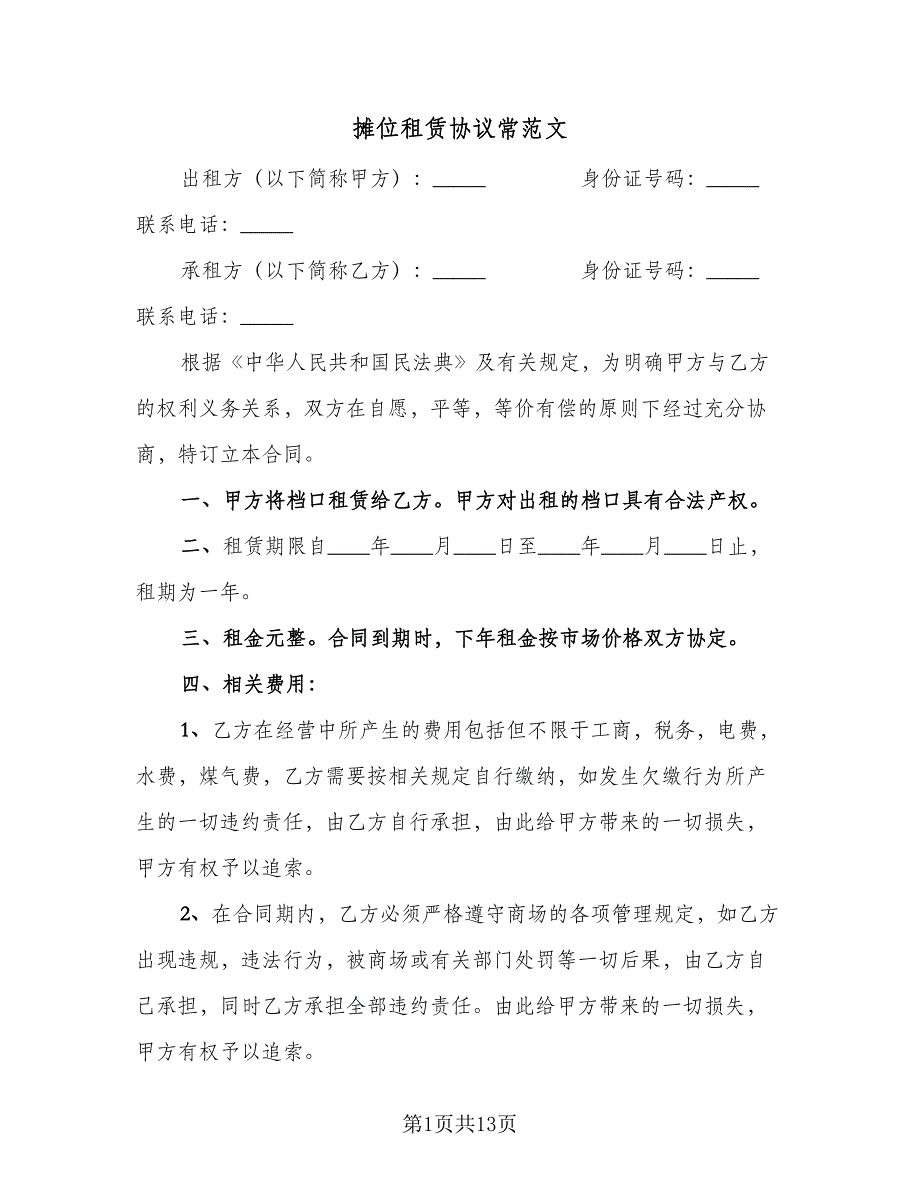 摊位租赁协议常范文
出租方（以下简称甲方）：_____ 身份证号码：_____
联系电话：_____
承租方（以下简称乙方）：_____ 身份证号码：_____
联系电话：_____
根据《中华人民共和国民法典》及有关规定，为明确甲方与乙方
的权利义务关系，双方在自愿，平等，等价有偿的原则下经过充分协
商，特订立本合同。
一、甲方将档口租赁给乙方。甲方对出租的档口具有合法产权。
二、租赁期限自____年____月____日至____年____月____日止，
租期为一年。
三、租金元整。合同到期时，下年租金按市场价格双方协定。
四、相关费用：
1、乙方在经营中所产生的费用包括但不限于工商，税务，电费，
水费，煤气费，乙方需要按相关规定自行缴纳，如发生欠缴行为所产
生的一切违约责任，由乙方自行承担，由此给甲方带来的一切损失，
甲方有权予以追索。
2、在合同期内，乙方必须严格遵守商场的各项管理规定，如乙方
出现违规，违法行为，被商场或有关部门处罚等一切后果，由乙方自
己承担，同时乙方承担全部违约责任。由此给甲方带来的一切损失，
甲方有权予以追索。
第1页共13页